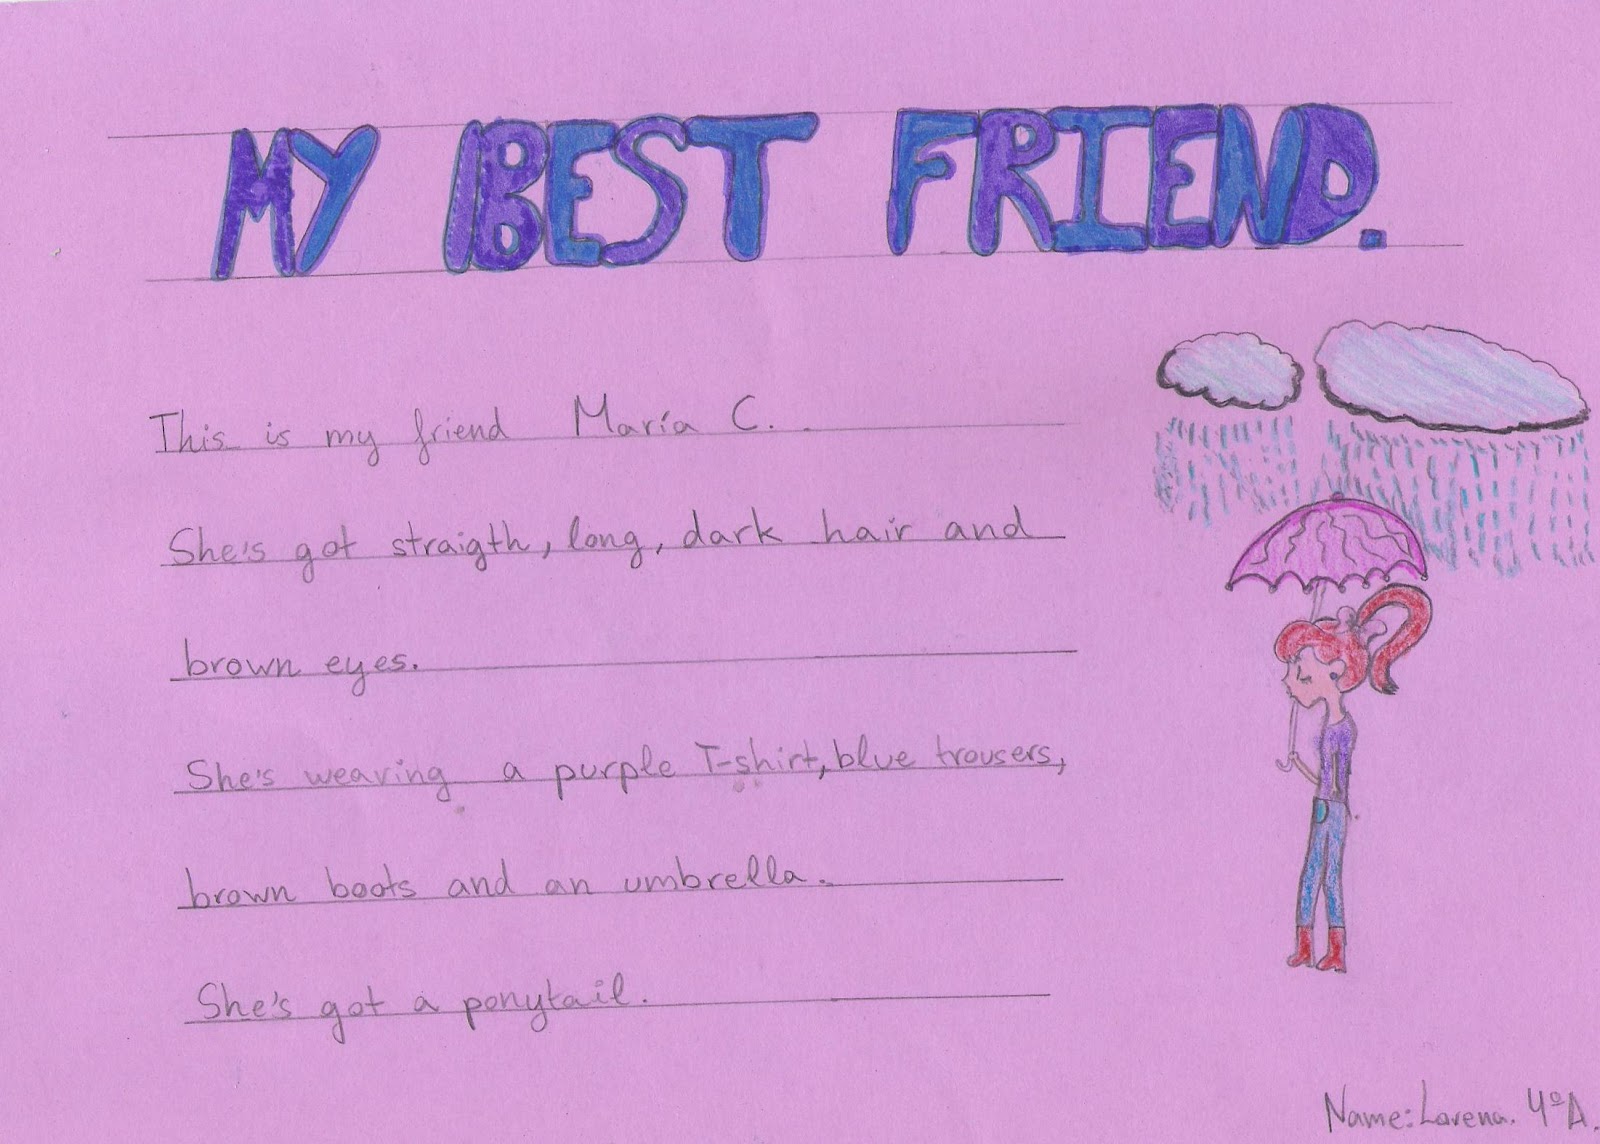 MY BEST FRIEND.
This is my friend María C.
She's got straigth, long, dark hair and
brown eyes.
She's wearing a purple T-shirt, blue trousers,
brown boots and an umbrella.
She's got a ponytail.
Name: Lorena. 4ºA.